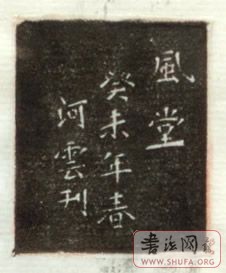 風堂
癸未年春
河雲刊
書法网
WWW.SHUFA.ORG